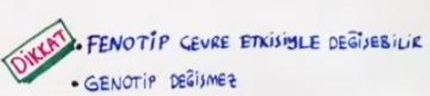 DİKKAT
• FENOTİP ÇEVRE ETKİSİYLE DEĞİŞEBİLİR
• GENOTİP DEĞİŞMEZ